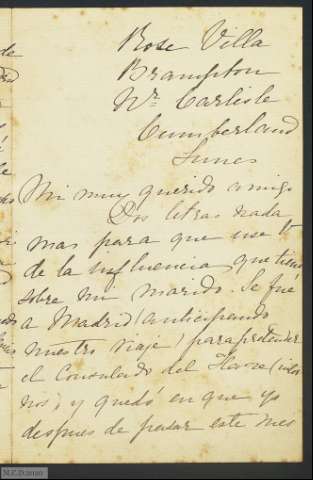 Rose Villa
Brampton
Nr. Carlisle
Cumberland
Lunes
Mi muy querido amigo
Dos letras nada
mas para que use V.
de la influencia que tiene
sobre mi marido. Se fué
a Madrid (anticipando
nuestro viaje) para pretender
el Consulado del Havre
nos) y quedó en que yo
despues de pasar este mes